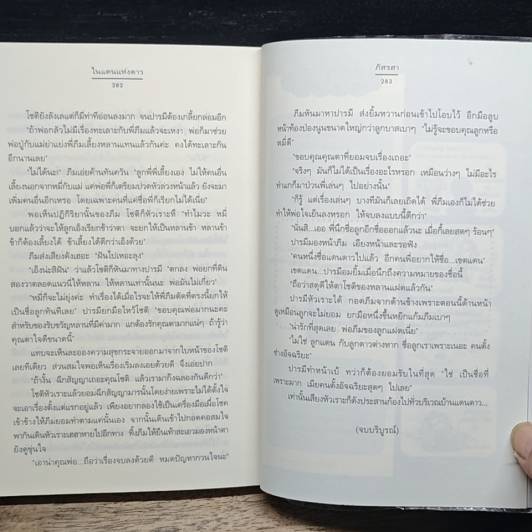 ในแดนแห่งดาว
282
โชติยังลังเลแต่ก็มีท่าทีอ่อนลงมาก จนปารมีต้องเกลี้ยกล่อมอีก
"ถ้าพ่อกลัวไม่มีเรื่องทะเลาะกับพี่ภีมแล้วจะเหงา พ่อก็มาช่วย
พ่อปู่กับแม่ย่าแย่งพี่ภีมเลี้ยงหลานแทนแล้วกันค่ะ คงได้ทะเลาะกัน
อีกนานเลย"
"ไม่ได้นะ" ภีมเอ่ยค้านทันควัน "ลูกพี่พี่เลี้ยงเอง ไม่ให้คนอื่น
เลี้ยงนอกจากหมี่กับแม่ แค่พ่อพี่ก็เตรียมปวดหัวล่วงหน้าแล้ว ยังจะมา
เพิ่มคนอื่นอีกเหรอ โดยเฉพาะคนที่แค่ชื่อพี่ก็เรียกไม่ได้เนี่ย"
พอเห็นปฏิกิริยานั้นของภีม โชติก็หัวเราะหึ "ทำไมวะ หมี่
บอกแล้วว่าจะให้ลูกเอ็งเรียกข้าว่าตา จะยกให้เป็นหลานข้า หลานข้า
ข้าก็ต้องเลี้ยงได้ ข้าเลี้ยงได้ดีกว่าเอ็งด้วย"
ภีมส่งเสียงดังเฮอะ "ฝันไปเหอะลุง"
"เอ็งน่ะสิฝัน" ว่าแล้วโชติก็หันมาทางปารมี "ตกลง พ่อยกที่ดิน
สองวาตลอดแนวนี่ให้หลาน ให้หลานเท่านั้นนะ พ่อมันไม่เกี่ยว"
"หมี่ก็จะไม่ยุ่งค่ะ ท่าเรื่องได้เมื่อไรจะให้พี่ภีมตัดที่ตรงนี้ยกให้
เป็นชื่อลูกทันทีเลย" ปารมียกมือไหว้โชติ "ขอบคุณพ่อมากนะคะ
สำหรับของรับขวัญหลานที่มีค่ามาก แกต้องรักคุณตามากแน่ๆ ถ้ารู้ว่า
คุณตาใจดีขนาดนี้"
แทบจะเห็นละอองความสุขกระจายออกมาจากใบหน้าของโชติ
เลยทีเดียว ส่วนสมใจพอเห็นเรื่องเริ่มลงเอยด้วยดี จึงเอ่ยปาก
"ถ้างั้น ฉีกสัญญาเถอะคุณโชติ แล้วเรามาก๊งฉลองกันดีกว่า"
โชติหัวเราะแล้วยอมฉีกสัญญามารนั่นโดยง่ายเพราะไม่ได้ตั้งใจ
จะเอาเรื่องตั้งแต่แรกอยู่แล้ว เพียงอยากลองใช้เป็นเครื่องมือเผื่อโชค
เข้าข้างให้ภีมยอมทำตามแค่นั้นเอง จากนั้นเดินเข้าไปกอดคอสมใจ
พากันเดินหัวเราะเฮฮาหายไปอีกทาง ทิ้งภีมให้ยืนเท้าสะเอวมองหน้าตา
ยังดูขุ่นใจ
"เอาน่าคุณพ่อ...ถือว่าเรื่องจบลงด้วยดี หมดปัญหากวนใจน่ะ"
ภัสรสา
283
ภีมหันมาหาปารมี ส่งยิ้มหวานก่อนเข้าไปโอบไว้ อีกมือลูบ
หน้าท้องป่องนูนขนาดใหญ่กว่าลูกบาสเบาๆ "ไม่รู้จะขอบคุณลูกหรือ
หมี่ดี"
"ขอบคุณคุณตาที่ยอมจบเรื่องเถอะ"
"จริงๆ มันก็ไม่ได้เป็นเรื่องอะไรหรอก เหมือนว่างๆ ไม่มีอะไร
ทำแกก็มาป่วนพี่เล่นๆ ไปอย่างนั้น"
"ก็รู้ แต่เรื่องเล่นๆ บางทีมันก็เลยเถิดได้ พี่ภีมเองก็ไม่ได้ช่วย
ทำให้พ่อใจเย็นลงหรอก ให้จบลงแบบนี้ดีกว่า"
"นั่นสิ...เออ พี่นึกชื่อลูกอีกชื่อออกแล้วนะ เมื่อกี้เลยสดๆ ร้อนๆ"
ปารมีมองหน้าภีม เอียงหน้าและรอฟัง
"คนหนึ่งชื่อแดนดาวไปแล้ว อีกคนพี่อยากให้ชื่อ...เขตแดน"
เขตแดน...ปารมีอมยิ้มเมื่อนึกถึงความหมายของชื่อนี้
"ถือว่าสดุดีให้ตาโชติของหลานแฝดแล้วกัน"
ปารมีหัวเราะได้ กอดภีมจากด้านข้างเพราะตอนนี้ด้านหน้า
ดูเหมือนลูกจะไม่ยอม ยกมือหนึ่งขึ้นหยิกแก้มภีมเบาๆ
"น่ารักที่สุดเลย พ่อภีมของลูกแฝดเนี่ย"
"ไม่ใช่ ลูกแดน กับลูกดาวต่างหาก ชื่อลูกเราเพราะเนอะ คนตั้ง
ช่างอัจฉริยะ"
ปารมีทำหน้าเบ้ ทว่าก็ต้องยอมรับในที่สุด "ใช่ เป็นชื่อที่
เพราะมาก เมียคนตั้งอัจฉริยะสุดๆ ไปเลย"
เท่านั้นเสียงหัวเราะก็ดังประสานก้องไปทั่วบริเวณบ้านแดนดาว...
(จบบริบูรณ์)